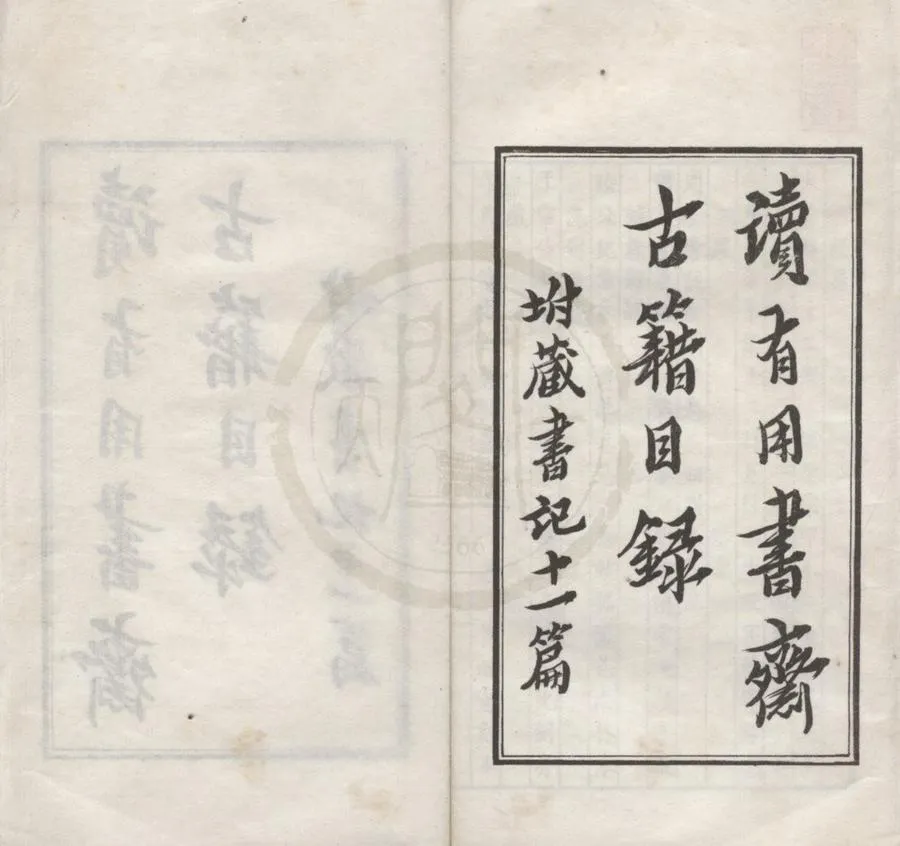 讀有用書齋
古籍目録
坿藏書記十一篇